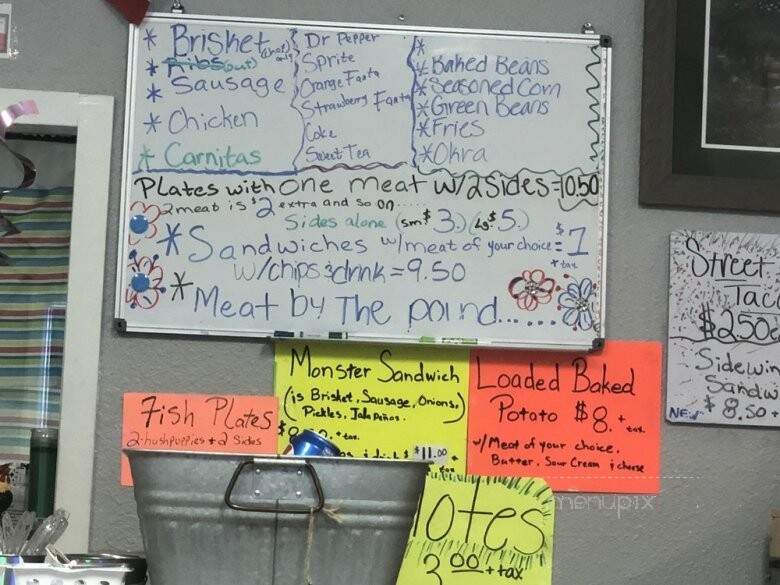 * Brisket
* Ribs (out)
* Sausage
* Chicken
* Carnitas
Dr Pepper
Sprite
Orange Fanta
Strawberry Fanta
Coke
Sweet Tea
*
* Baked Beans
* Seasoned Corn
* Green Beans
* Fries
* Okra
Plates with one meat w/2 sides = 10.50
2 meat is $2 extra and so on....
Sides alone (sm $3.) (Lg $5.)
* Sandwiches w/meat of your choice = $7
+ tax
w/chips & drink = 9.50
* Meat by The pound......
Street
Tac
$2.50
Sidewin
Sandw
NEW $8.50
Monster Sandwich
(is Brisket, Sausage, Onions,)
Pickles, Jalapeños.
+ tax
$11.00
+ tax
Loaded Baked
Potato $8. + tax
w/Meat of your choice.
Butter, Sour Cream & cheese
Fish Plates
2-hushpuppies + 2 Sides
otes
00 + tax
menupix